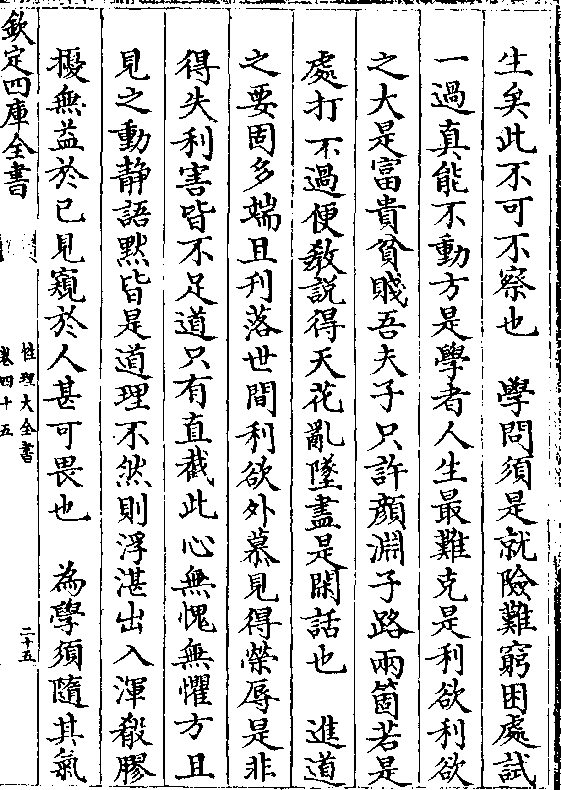 生矣此不可不察也　學問須是就險難窮困處試
一過真能不動方是學者人生最難克是利欲利欲
之大是富貴貧賤吾夫子只許顔淵子路兩箇若是
處打不過便教説得天花亂墜盡是閑話也　進道
之要固多端且刋落世間利欲外慕見得榮辱是非
得失利害皆不足道只有直截此心無愧無懼方且
見之動静語黙皆是道理不然則浮湛出入渾殽膠
擾無益於已見窺於人甚可畏也　為學須隨其氣
欽定四庫全書
性理大全書
卷四十五
二十五